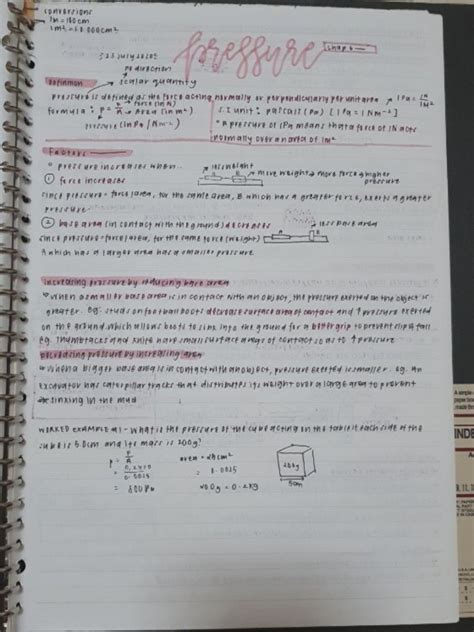 conversions
1m = 100cm
1m² = 10 000cm²
pressure
chap 6
no direction
scalar quantity
definition
pressure is defined as the force acting normally or perpendicularly per unit area
formula : p = F/A → force (in N)
→ Area (in m²)
pressure (in Pa / Nm⁻²)
1Pa = 1N/1m²
S.I unit : pascals (Pa) [1Pa = 1Nm⁻²]
a pressure of 1Pa means that a force of 1N acts
normally over an area of 1m²
factors
pressure increases when..
① force increases
less weight
more weight → more force & higher
pressure
A B
since pressure = force/area, for the same area, B which has a greater force, exerts a greater
pressure
② base area (in contact with the ground) decreases
less base area
since pressure = force/area, for the same force (weight)
A which has a larger area has a smaller pressure
increasing pressure by reducing base area
when a smaller base area is in contact with an object, the pressure exerted on the object is
greater. eg. studs on football boots decrease surface area of contact and ↑ pressure exerted
on the ground which allows boots to sink into the ground for a better grip to prevent slip & fall
eg. thumbtacks and knife have small surface areas of contact so as to ↑ pressure
decreasing pressure by increasing area
when a bigger base area is in contact with an object, pressure exerted is smaller. eg. an
excavator has caterpillar tracks that distributes its weight over a large area to prevent
sinking in the mud
WORKED EXAMPLE #1 - What is the pressure of the cube acting on the table if each side of the
cube is 5.0cm and its mass is 200g?
p = F/A area = 25cm²
= 0.2×10/0.0025 = 0.0025
= 800Pa 200g = 0.2kg
200g
5cm
INDE